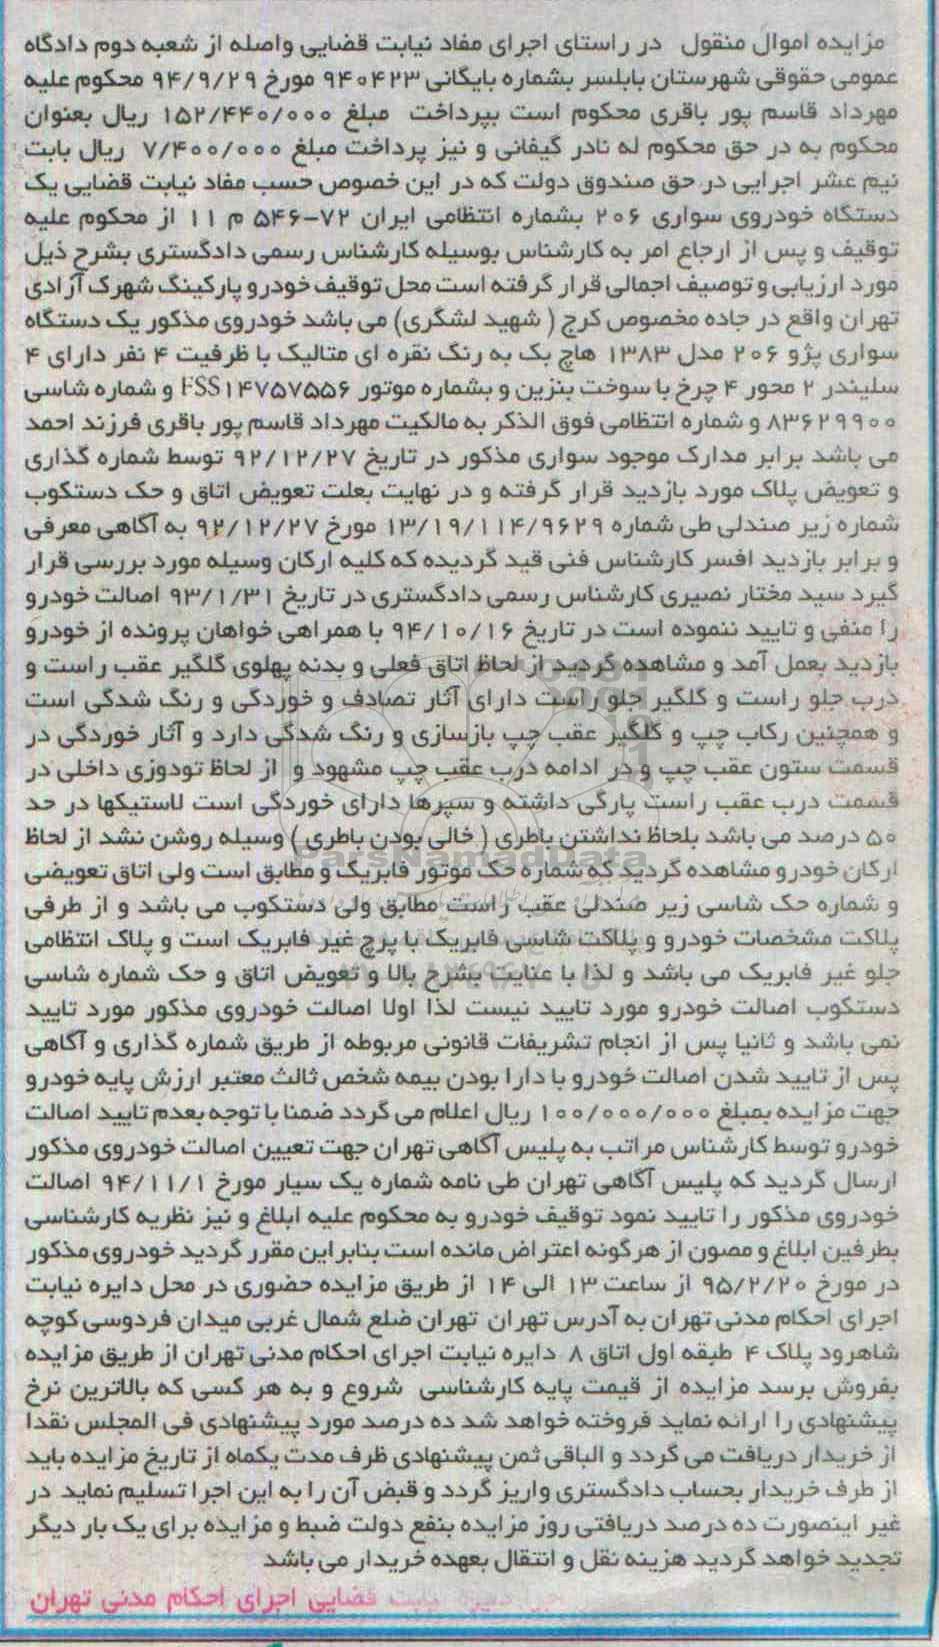 مزایده اموال منقول در راستای اجرای مفاد نیابت قضایی واصله از شعبه دوم دادگاه
عمومی حقوقی شهرستان بابلسر بشماره بایگانی ۹۴۰۴۲۳ مورخ ۹۴/۹/۲۹ محکوم علیه
مهرداد قاسم پور باقری محکوم است بپرداخت مبلغ ۱۵۲/۴۴۰/۰۰۰ ریال بعنوان
محکوم به در حق محکوم له نادر گیفانی و نیز پرداخت مبلغ ۷/۴۰۰/۰۰۰ ریال بابت
نیم عشر اجرایی در حق صندوق دولت که در این خصوص حسب مفاد نیابت قضایی یک
دستگاه خودروی سواری ۲۰۶ بشماره انتظامی ایران ۷۲-۵۴۶ م ۱۱ از محکوم علیه
توقیف و پس از ارجاع امر به کارشناس بوسیله کارشناس رسمی دادگستری بشرح ذیل
مورد ارزیابی و توصیف اجمالی قرار گرفته است محل توقیف خودرو پارکینگ شهرک آزادی
تهران واقع در جاده مخصوص کرج ( شهید لشگری) می باشد خودروی مذکور یک دستگاه
سواری پژو ۲۰۶ مدل ۱۳۸۳ هاچ بک به رنگ نقره ای متالیک با ظرفیت ۴ نفر دارای ۴
سلیندر ۲ محور ۴ چرخ با سوخت بنزین و بشماره موتور FSS۱۴۷۵۷۵۵۶ و شماره شاسی
۸۳۶۲۹۹۰۰ و شماره انتظامی فوق الذکر به مالکیت مهرداد قاسم پور باقری فرزند احمد
می باشد برابر مدارک موجود سواری مذکور در تاریخ ۹۲/۱۲/۲۷ توسط شماره گذاری
و تعویض پلاک مورد بازدید قرار گرفته و در نهایت بعلت تعویض اتاق و حک دستکوب
شماره زیر صندلی طی شماره ۱۳/۱۹/۱۱۴/۹۶۲۹ مورخ ۹۲/۱۲/۲۷ به آگاهی معرفی
و برابر بازدید افسر کارشناس فنی قید گردیده که کلیه ارکان وسیله مورد بررسی قرار
گیرد سید مختار نصیری کارشناس رسمی دادگستری در تاریخ ۹۳/۱/۳۱ اصالت خودرو
را منفی و تایید ننموده است در تاریخ ۹۴/۱۰/۱۶ با همراهی خواهان پرونده از خودرو
بازدید بعمل آمد و مشاهده گردید از لحاظ اتاق فعلی و بدنه پهلوی گلگیر عقب راست و
درب جلو راست و گلگیر جلو راست دارای آثار تصادف و خوردگی و رنگ شدگی است
و همچنین رکاب چپ و گلگیر عقب چپ بازسازی و رنگ شدگی دارد و آثار خوردگی در
قسمت ستون عقب چپ و در ادامه درب عقب چپ مشهود و از لحاظ تودوزی داخلی در
قسمت درب عقب راست پارگی داشته و سپرها دارای خوردگی است لاستیکها در حد
۵۰ درصد می باشد بلحاظ نداشتن باطری ( خالی بودن باطری ) وسیله روشن نشد از لحاظ
ParsNamadData
ارکان خودرو مشاهده گردید که شماره حک موتور فابریک و مطابق است ولی اتاق تعویضی
و شماره حک شاسی زیر صندلی عقب راست مطابق ولی دستکوب می باشد و از طرفی
پلاکت مشخصات خودرو و پلاکت شاسی فابریک با پرچ غیر فابریک است و پلاک انتظامی
جلو غیر فابریک می باشد و لذا با عنایت بشرح بالا و تعویض اتاق و حک شماره شاسی
دستکوب اصالت خودرو مورد تایید نیست لذا اولا اصالت خودروی مذکور مورد تایید
نمی باشد و ثانیا پس از انجام تشریفات قانونی مربوطه از طریق شماره گذاری و آگاهی
پس از تایید شدن اصالت خودرو با دارا بودن بیمه شخص ثالث معتبر ارزش پایه خودرو
جهت مزایده بمبلغ ۱۰۰/۰۰۰/۰۰۰ ریال اعلام می گردد ضمنا با توجه بعدم تایید اصالت
خودرو توسط کارشناس مراتب به پلیس آگاهی تهران جهت تعیین اصالت خودروی مذکور
ارسال گردید که پلیس آگاهی تهران طی نامه شماره یک سیار مورخ ۹۴/۱۱/۱ اصالت
خودروی مذکور را تایید نمود توقیف خودرو به محکوم علیه ابلاغ و نیز نظریه کارشناسی
بطرفین ابلاغ و مصون از هرگونه اعتراض مانده است بنابراین مقرر گردید خودروی مذکور
در مورخ ۹۵/۲/۲۰ از ساعت ۱۳ الی ۱۴ از طریق مزایده حضوری در محل دایره نیابت
اجرای احکام مدنی تهران به آدرس تهران تهران ضلع شمال غربی میدان فردوسی کوچه
شاهرود پلاک ۴ طبقه اول اتاق ۸ دایره نیابت اجرای احکام مدنی تهران از طریق مزایده
بفروش برسد مزایده از قیمت پایه کارشناسی شروع و به هر کسی که بالاترین نرخ
پیشنهادی را ارائه نماید فروخته خواهد شد ده درصد مورد پیشنهادی فی المجلس نقدا
از خریدار دریافت می گردد و الباقی ثمن پیشنهادی ظرف مدت یکماه از تاریخ مزایده باید
از طرف خریدار بحساب دادگستری واریز گردد و قبض آن را به این اجرا تسلیم نماید در
غیر اینصورت ده درصد دریافتی روز مزایده بنفع دولت ضبط و مزایده برای یک بار دیگر
تجدید خواهد گردید هزینه نقل و انتقال بعهده خریدار می باشد
قضایی اجرای احکام مدنی تهران